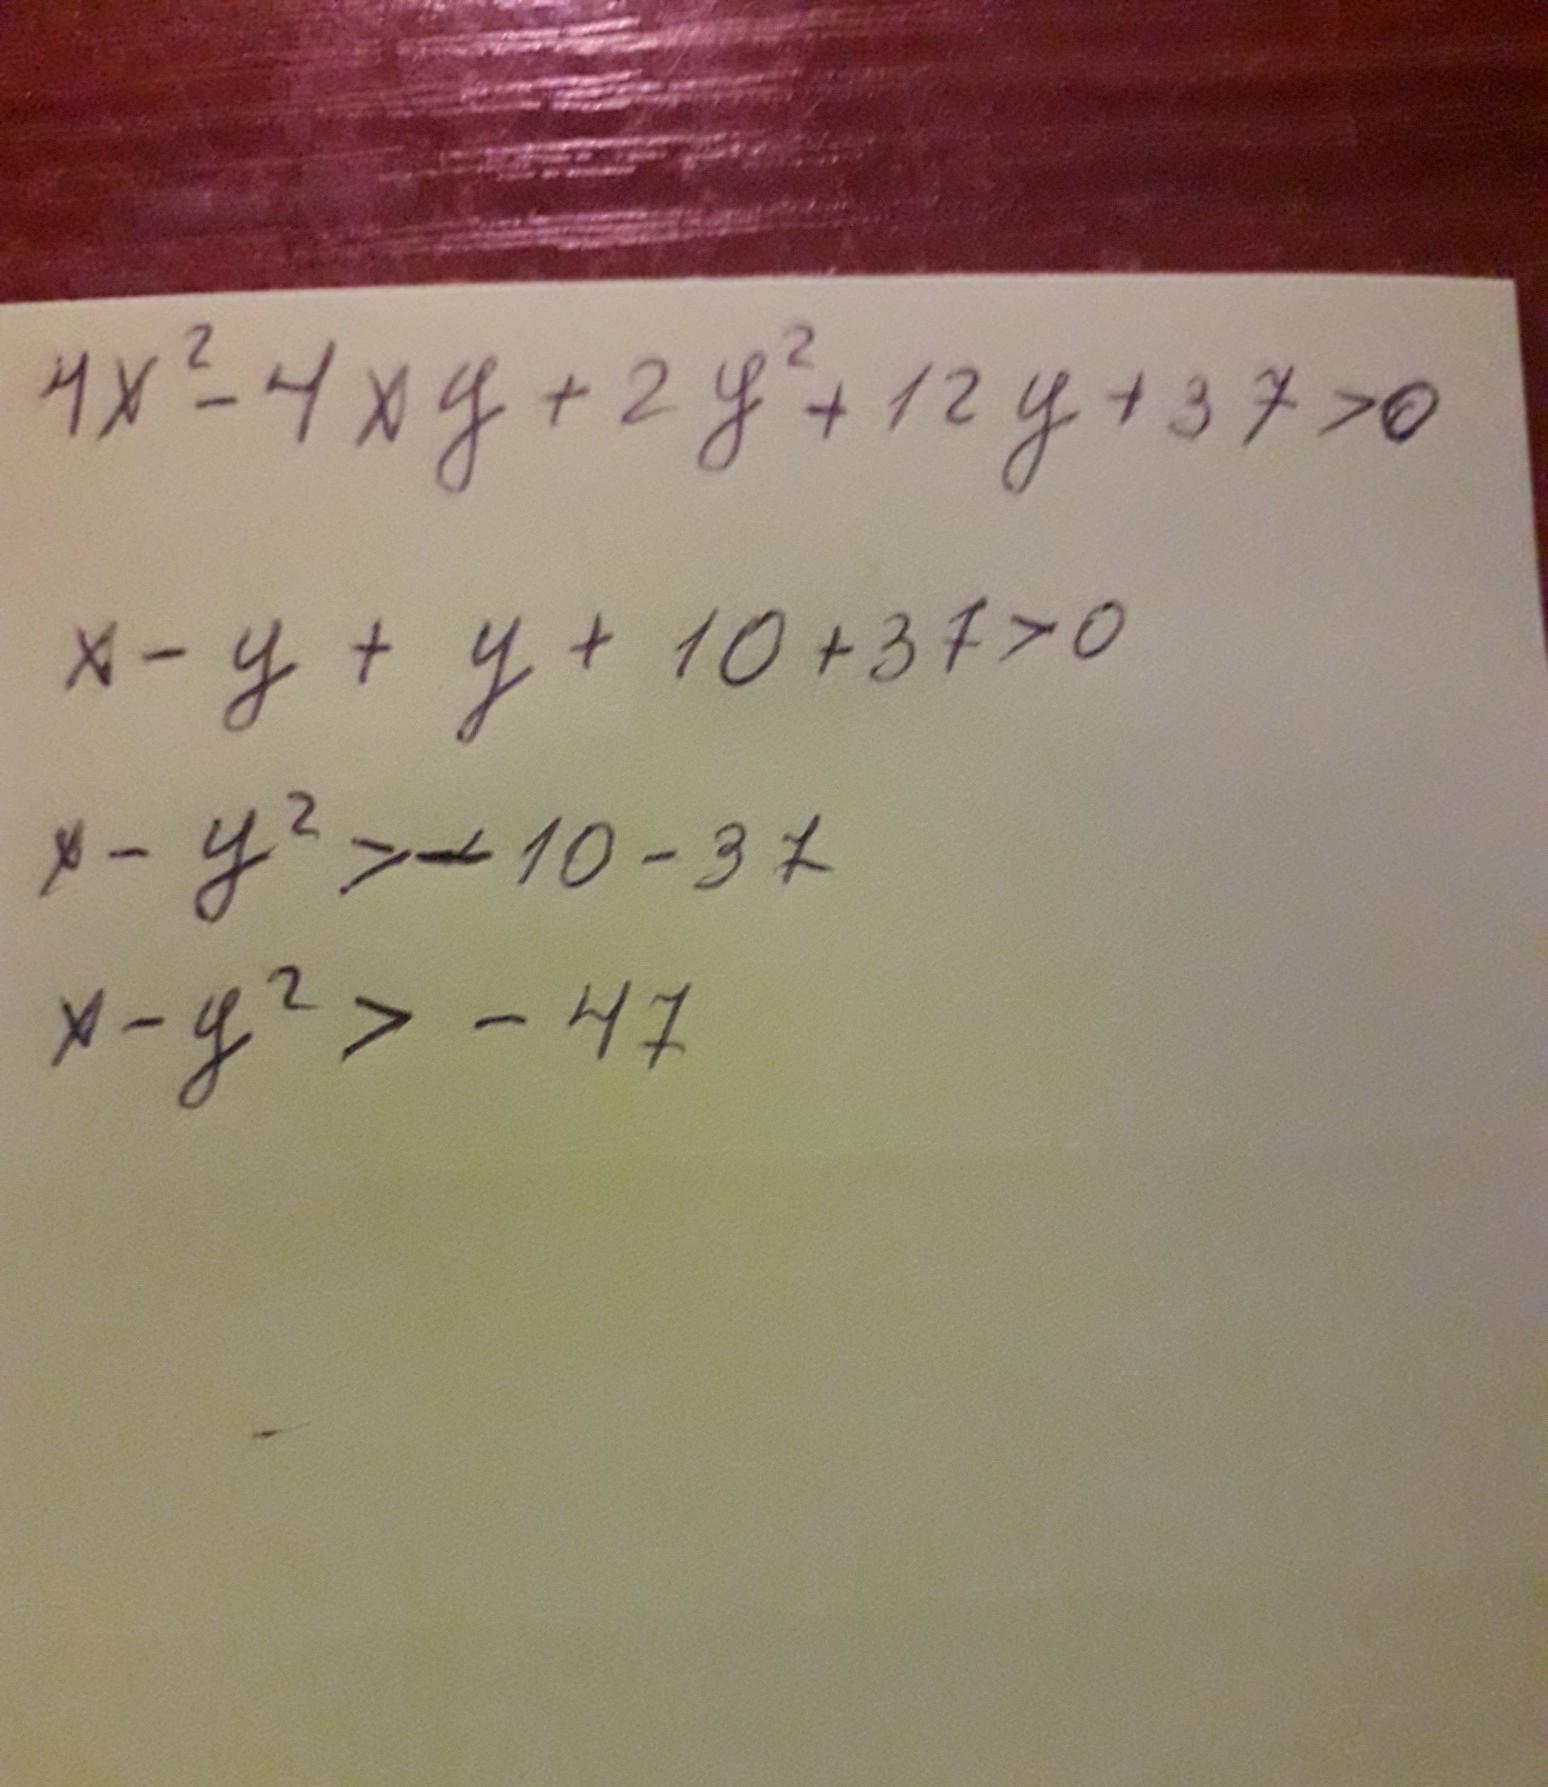 4x² - 4xy + 2y² + 12y + 37 > 0
x - y + y + 10 + 37 > 0
x - y² > - 10 - 37
x - y² > - 47
-